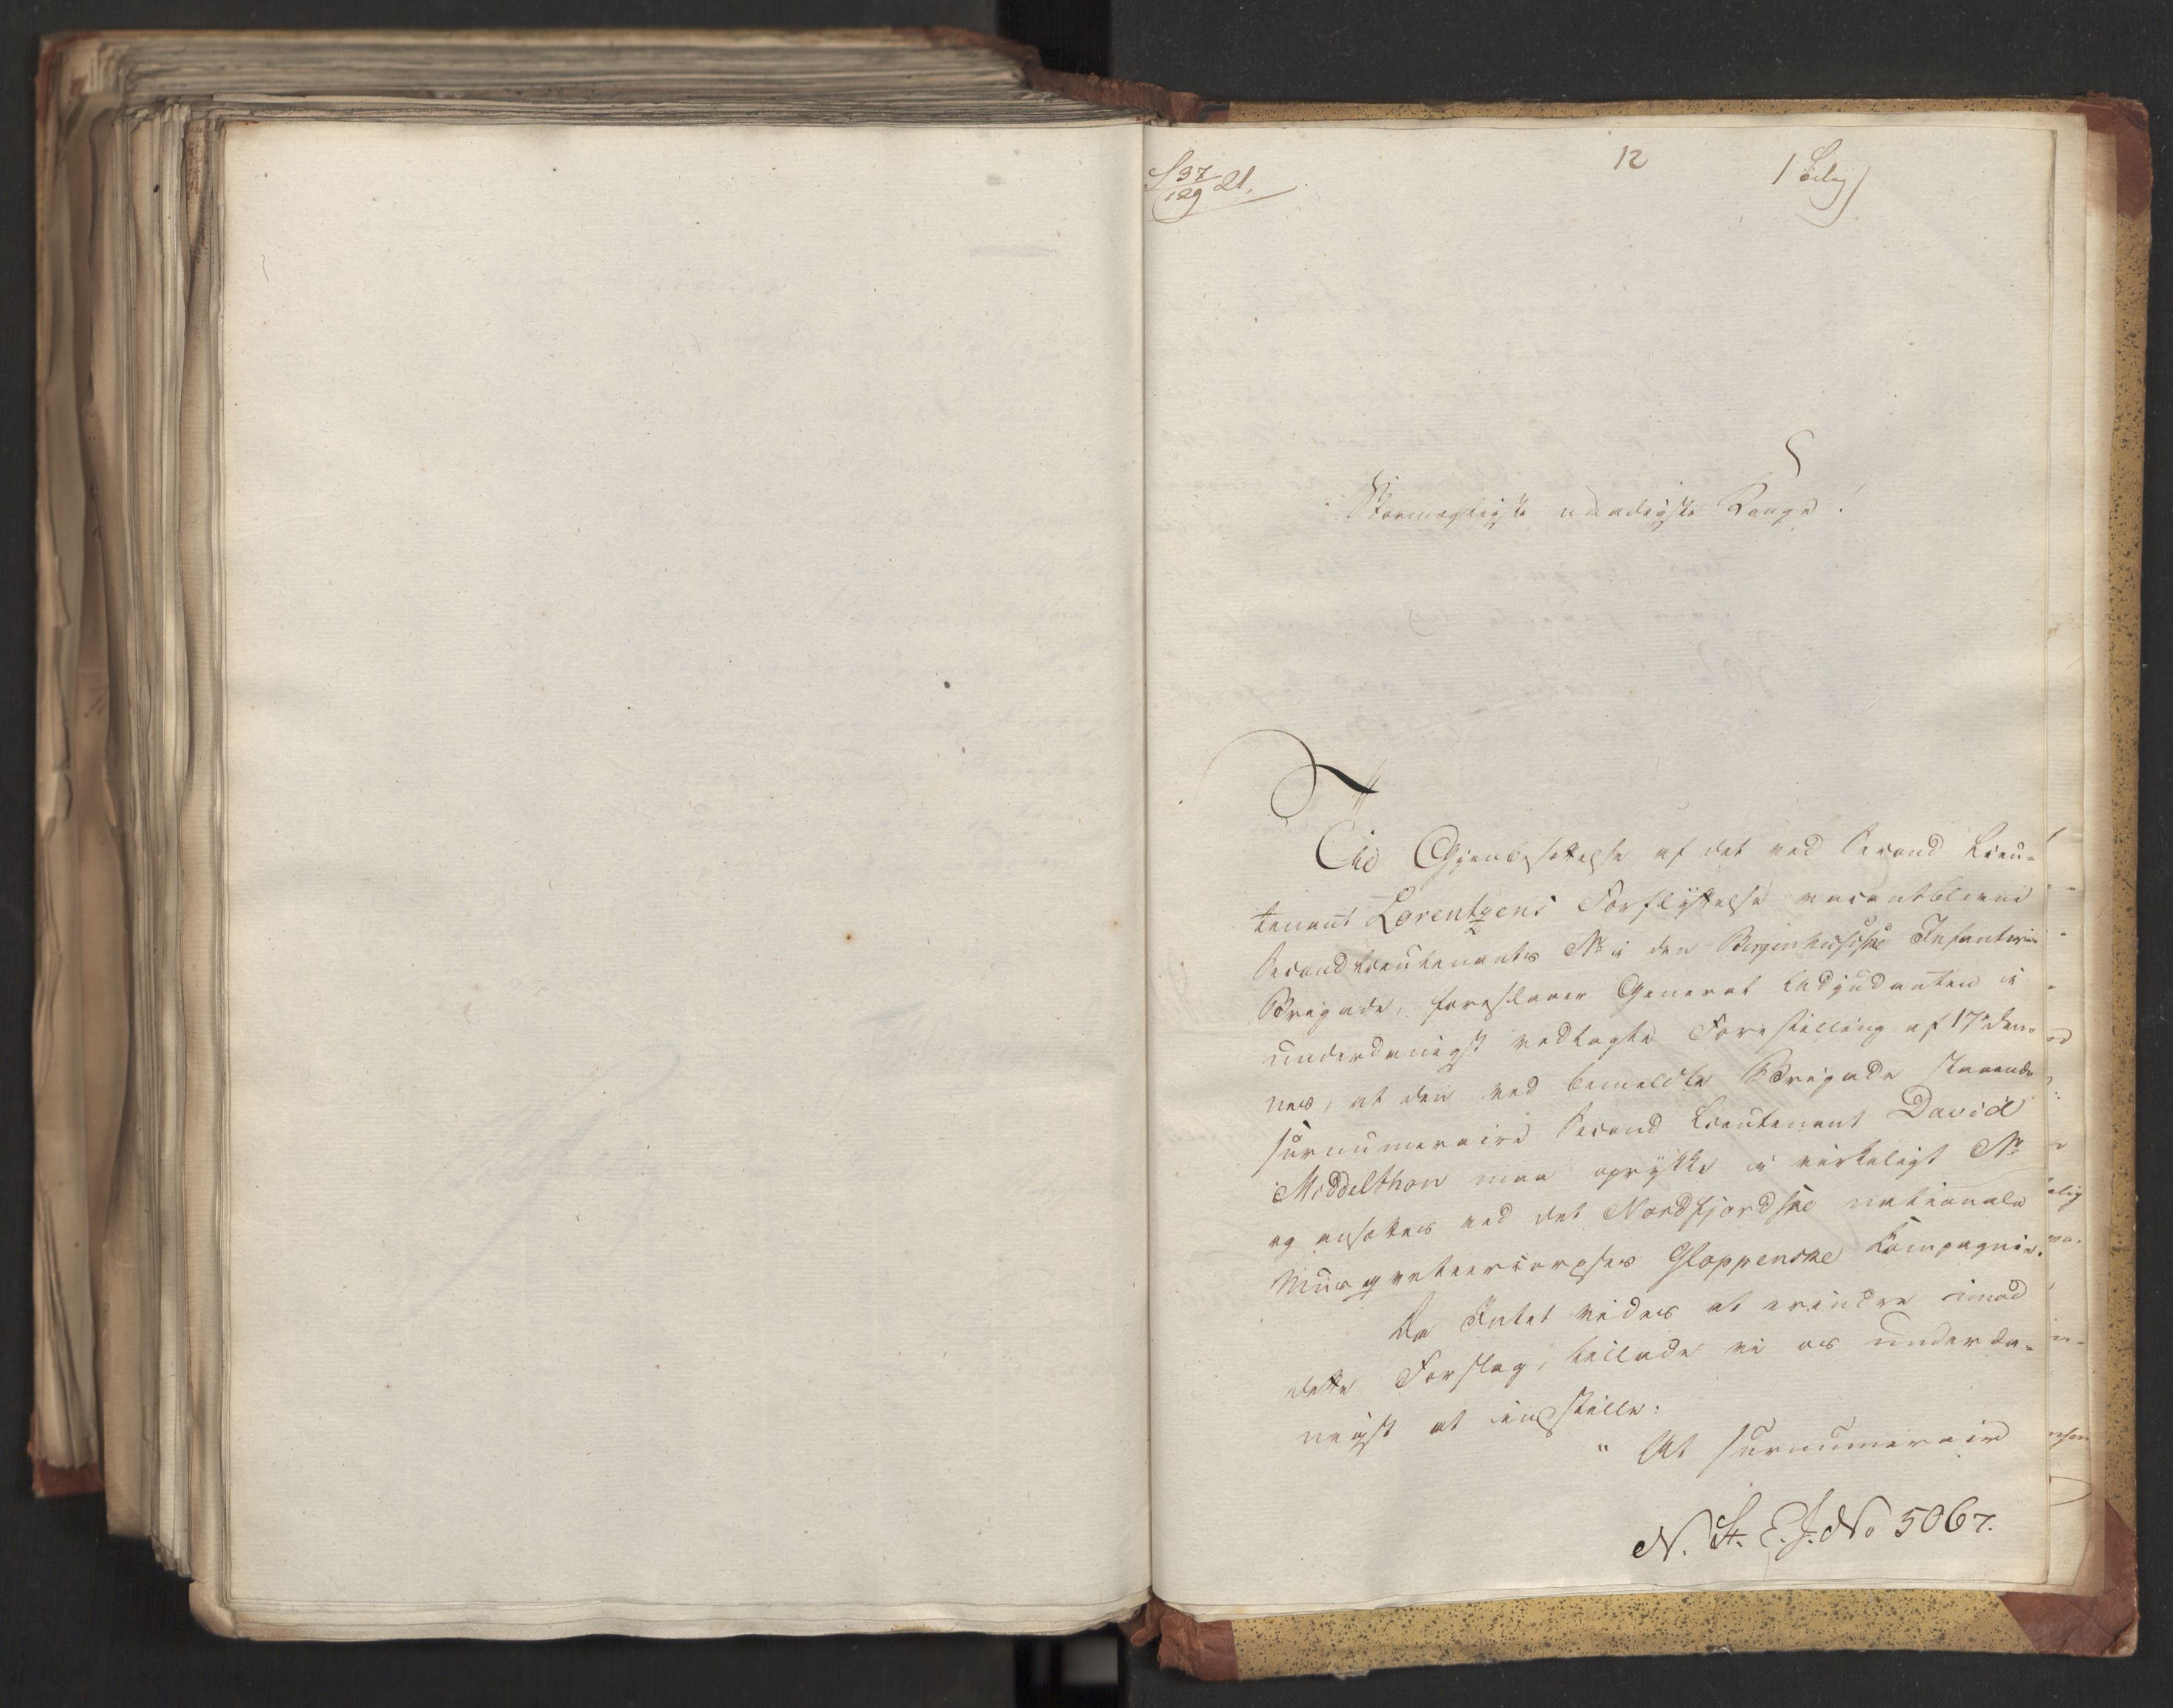 S 37/129 21.
12
1 Bilag
Stormægtigste naadigste Konge!
Til Gjenbesættelse af det ved Second Lieu-
tenant Lorentzens Forflyttelse vacantblevne
Secondlieutenants No i den Bergenhusiske Infanterie
Brigade, foreslaaer General Adjudanten i
underdanigst vedlagte Forestilling af 17de den-
nes, at den ved bemeldte Brigade staaende
surnumeraire Second Lieutenant David
Middelthon maa oprykke i virkeligt No
og ansættes ved det Nordfjordske nationale
Musqveteercorpses Gloppenske Compagnie.
Da Intet vides at erindre imod
dette Forslag, tillade vi os underda-
nigst at indstille:
" At surnumeraire
N. St. E. J. No 5067.